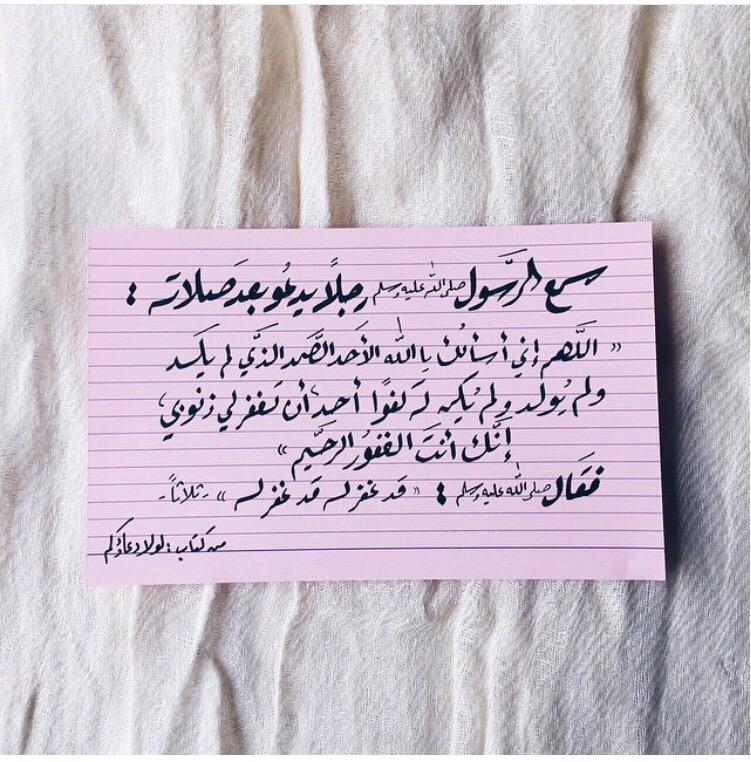 سمع الرَّسول صلى الله عليه وسلم رجلًا يدعُو بعدَ صلاته :
« اللَّهم إني أسألُك يا اللَّه الأحَد الصَّمد الذَّي لم يلد
ولم يُولد ولم يُكن له كفوًا أحد، أن تغفر لي ذنوبي،
إنَّك أنتَ الغفُور الرحَّيم »
فقَال صلى الله عليه وسلم : « قد غفر له قد غفر له » -ثلاثاً-
من كتاب : لولا دعاؤكم